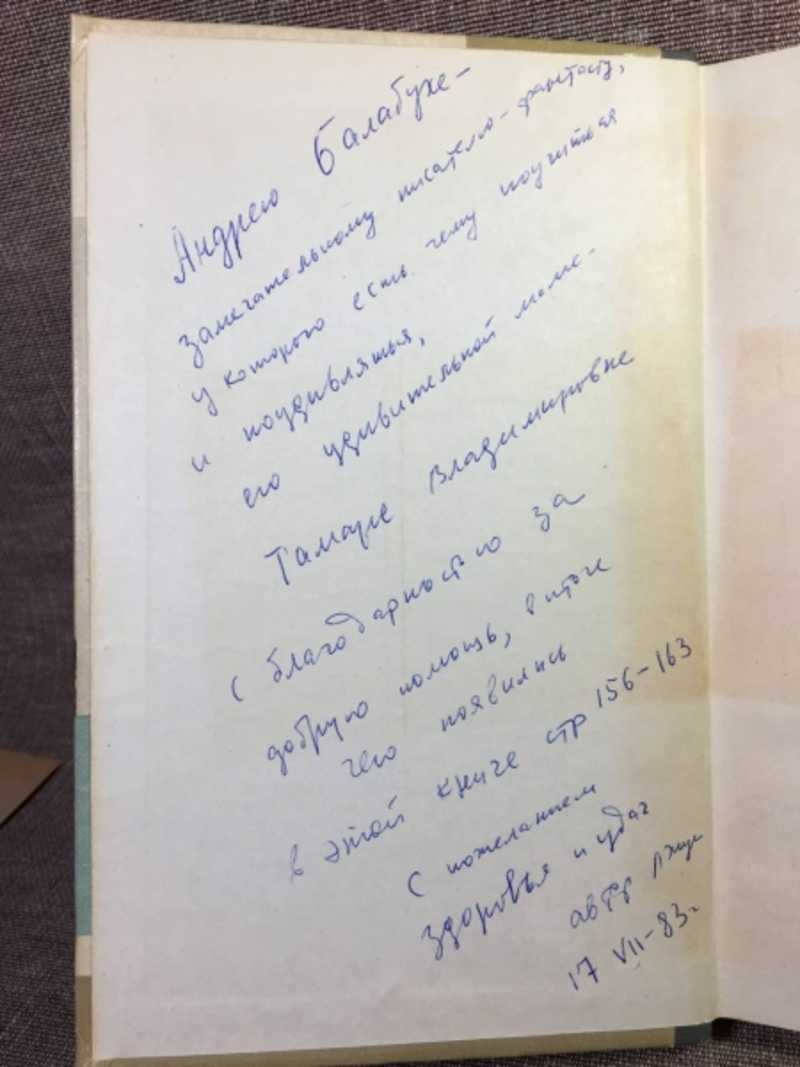 Андрею Балабухе -
замечательному писателю-фантасту,
у которого есть чему поучиться
и поудивляться,
его удивительной маме -
Тамаре Владимировне
с благодарностью за
добрую помощь, в итоге
чего появились
в этой книге стр 156-163
С пожеланием
здоровья и удач
автор
17 VII-83г